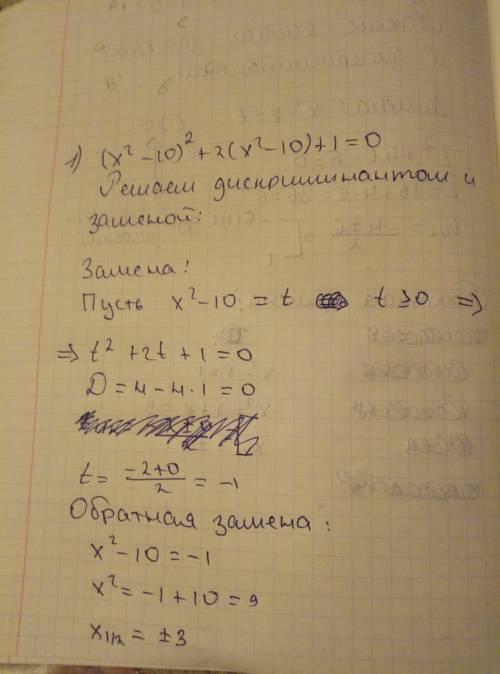 1) (x² - 10)² + 2(x² - 10) + 1 = 0
Решаем дискриминантом и
заменой:
Замена:
Пусть x² - 10 = t t ≥ 0 ⇒
⇒ t² + 2t + 1 = 0
D = 4 - 4 · 1 = 0
t = (-2+0)/2 = -1
Обратная замена:
x² - 10 = -1
x² = -1 + 10 = 9
x1/2 = ±3